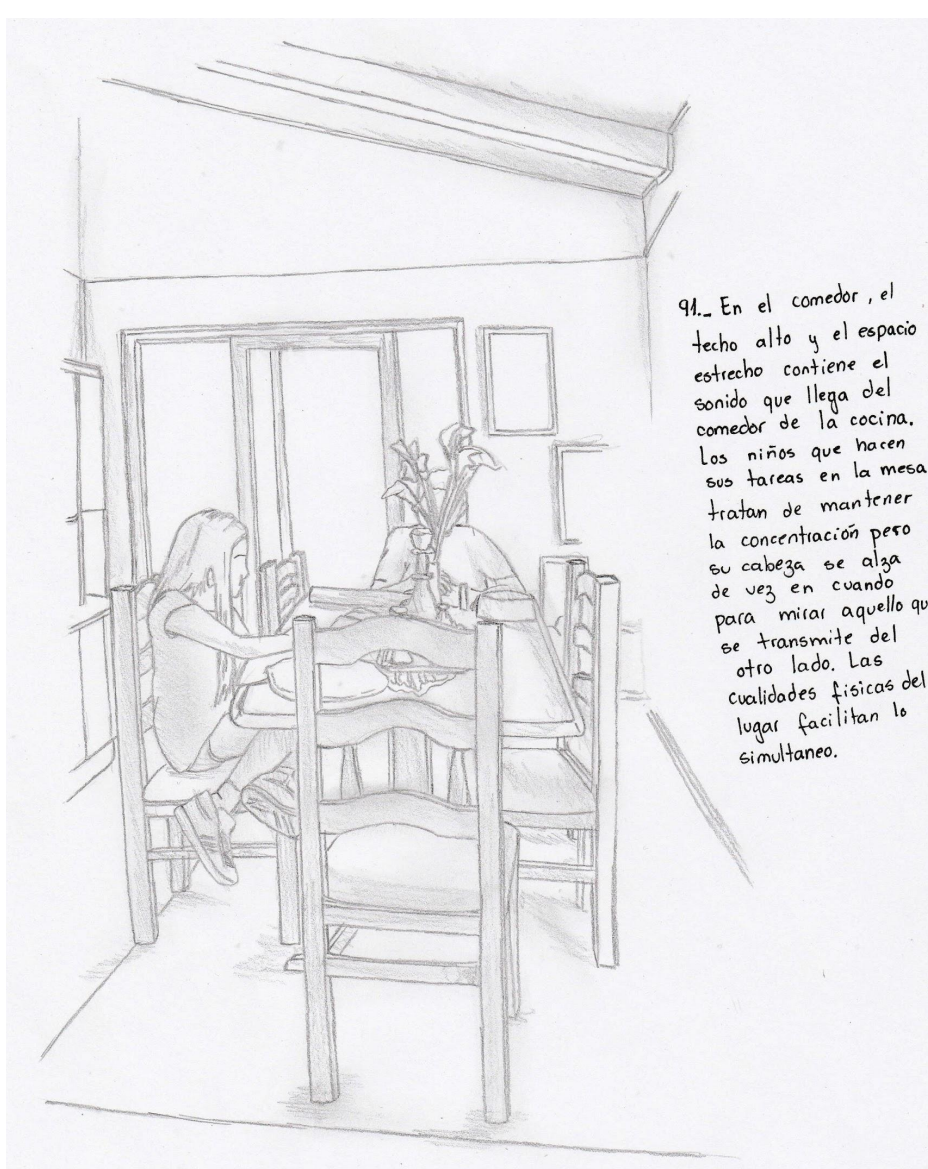 91._ En el comedor, el
techo alto y el espacio
estrecho contiene el
sonido que llega del
comedor de la cocina.
Los niños que hacen
sus tareas en la mesa
tratan de mantener
la concentración pero
su cabeza se alza
de vez en cuando
para mirar aquello qu
se transmite del
otro lado. Las
cualidades fisicas del
lugar facilitan lo
simultaneo.